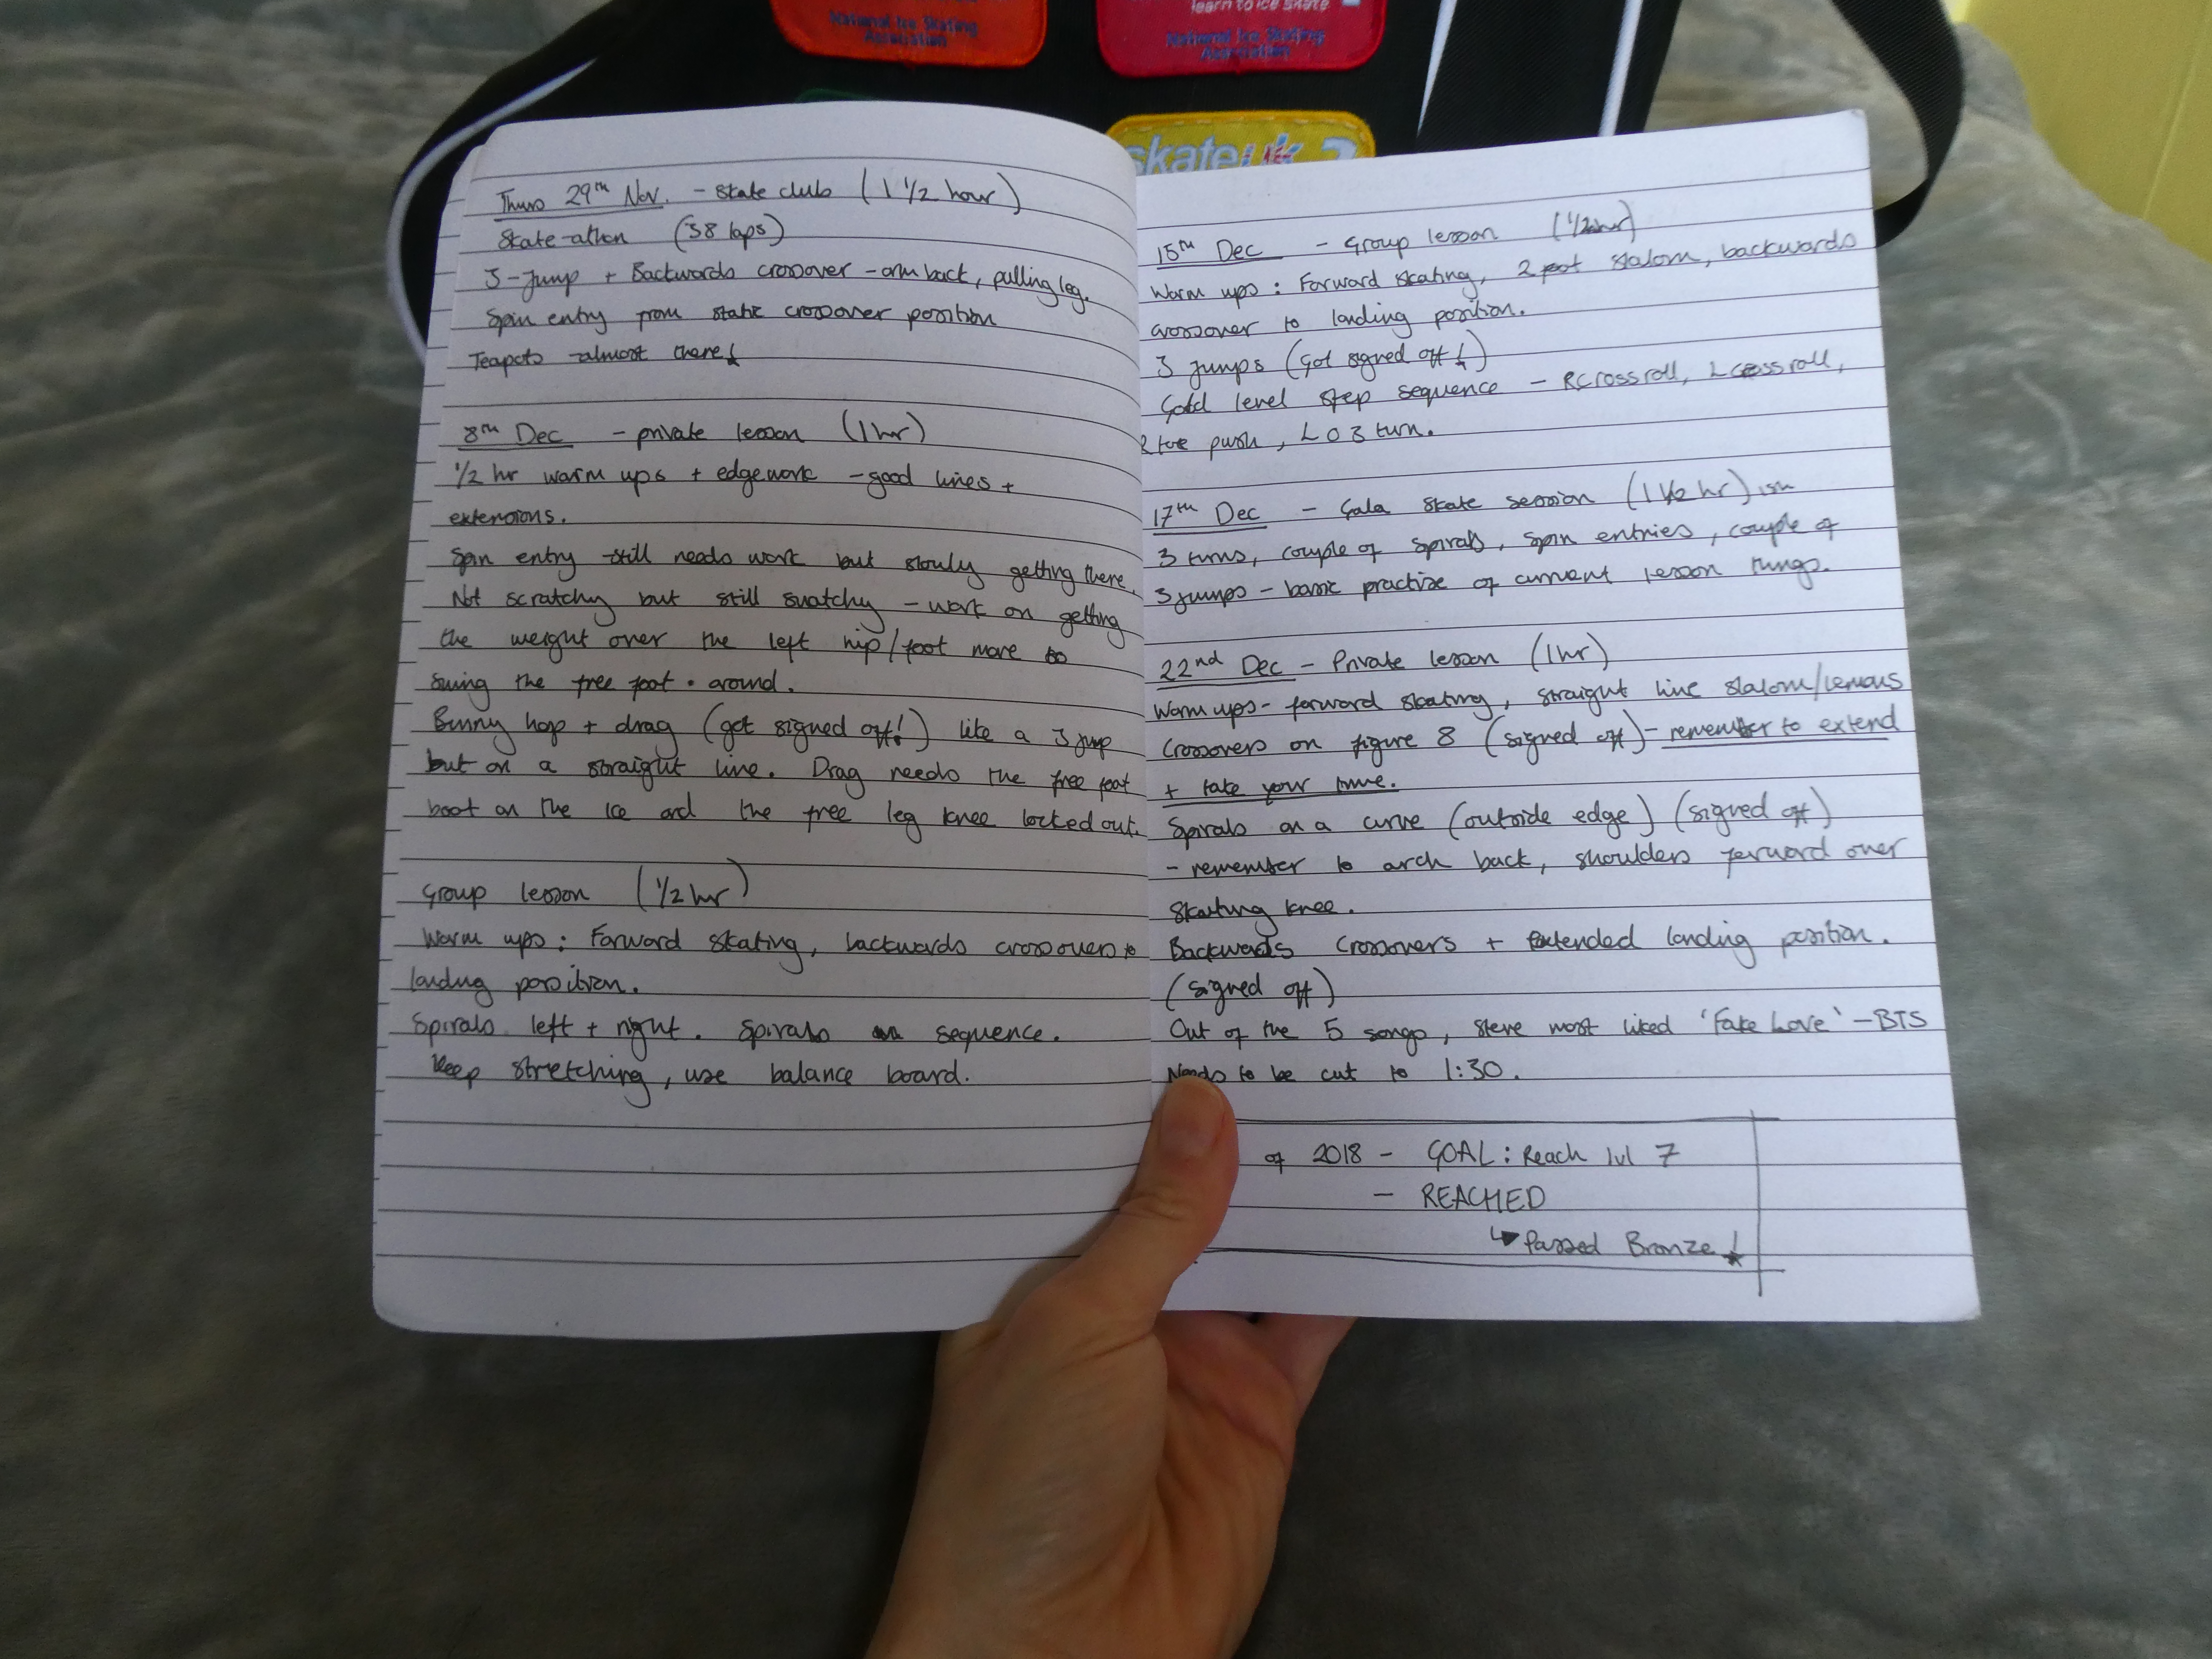 National Ice Skating
Association
learn to ice skate
National Ice Skating
Association
skate uk
Thurs 29th Nov. - skate club (1 1/2 hour)
Skate-athon (38 laps)
3-Jump + Backwards crossover - arm back, pulling leg.
Spin entry from static crossover position
Teapots almost there!
8th Dec - private lesson (1hr)
1/2 hr warm ups + edgework - good lines +
extensions.
Spin entry still needs work but slowly getting there.
Not scratchy but still snatchy - work on getting
the weight over the left hip/foot more to
swing the free foot around.
Bunny hop + drag (got signed off!) like a 3 jump
but on a straight line. Drag needs the free foot
boot on the ice and the free leg knee locked out.
Group lesson (1/2 hr)
Warm ups: Forward skating, backwards crossovers to
landing position.
Spirals left + right. Spirals sequence.
Keep stretching, use balance board.
15th Dec - Group lesson (1/2hr)
Warm ups: Forward skating, 2 foot slalom, backwards
crossover to landing position.
3 jumps (Got signed off!)
Gold level step sequence - R crossroll, L crossroll,
R toe push, L O 3 turn.
17th Dec - Gala skate session (1 1/2 hr) ish
3 turns, couple of spirals, spin entries, couple of
3 jumps - basic practise of current lesson things.
22nd Dec - Private lesson (1hr)
Warm ups - forward skating, straight line slalom/lemons
Crossovers on figure 8 (signed off) - remember to extend
+ take your time.
Spirals on a curve (outside edge) (signed off)
- remember to arch back, shoulders forward over
skating knee.
Backwards crossovers + extended landing position.
(signed off)
Out of the 5 songs, Steve most liked 'Fake Love' - BTS
Needs to be cut to 1:30.
of 2018 - GOAL: Reach lvl 7
- REACHED
↳ Passed Bronze!